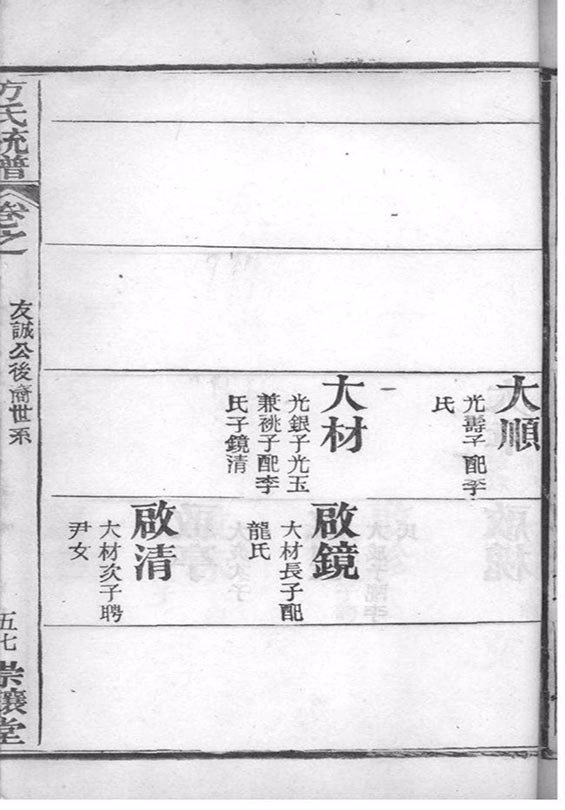 大順
光壽子配李
氏
大材
光銀子光玉
兼祧子配李
氏子鏡清
啟鏡
大材長子配
龍氏
啟清
大材次子聘
尹女
方氏統譜
卷之
友誠公後裔世系
五七
堂